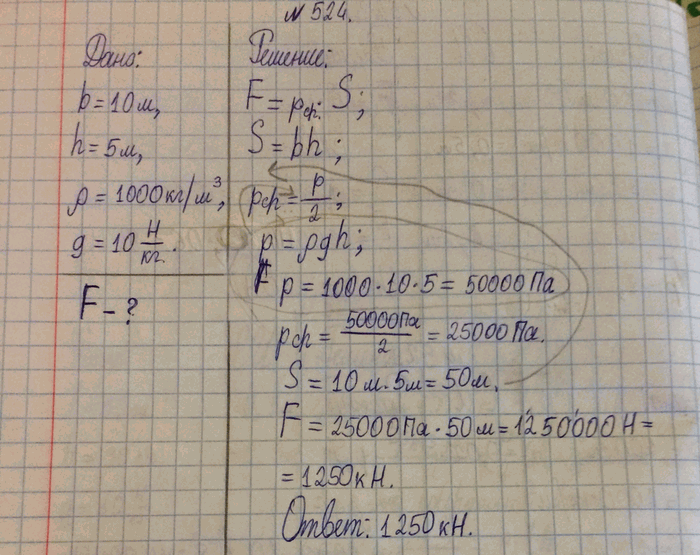 № 524.
Дано:
b = 10 м,
h = 5 м,
ρ = 1000 кг/м³,
g = 10 Н/кг.
F - ?
Решение:
F = pср. S;
S = bh;
pср = p/2;
p = ρgh;
p = 1000 · 10 · 5 = 50000 Па
pср = 50000 Па/2 = 25000 Па.
S = 10 м · 5 м = 50 м,
F = 25000 Па · 50 м = 1250000 Н =
= 1250 кН.
Ответ: 1250 кН.